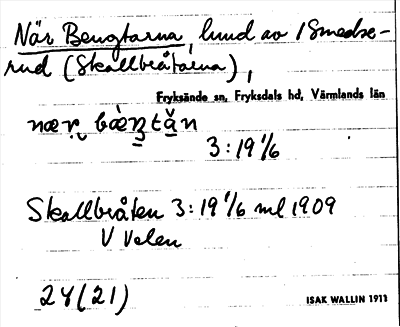 När Bengtarna, lund av 1 Smedse-
rud (Skallbråtarna),
Fryksände sn, Fryksdals hd, Värmlands län
3:19 1/6
Skallbråten 3:19 1/6 ml 1909
V Valen
24 (21)
ISAK WALLIN 1911